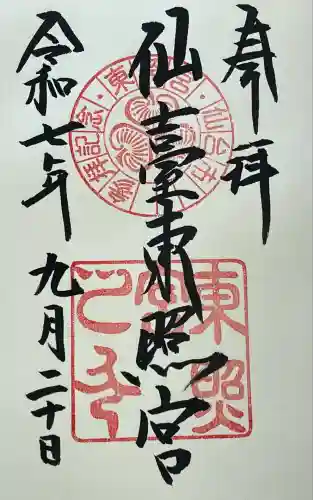 奉拝
仙臺東照宮
令和七年
九月二十日
東照宮